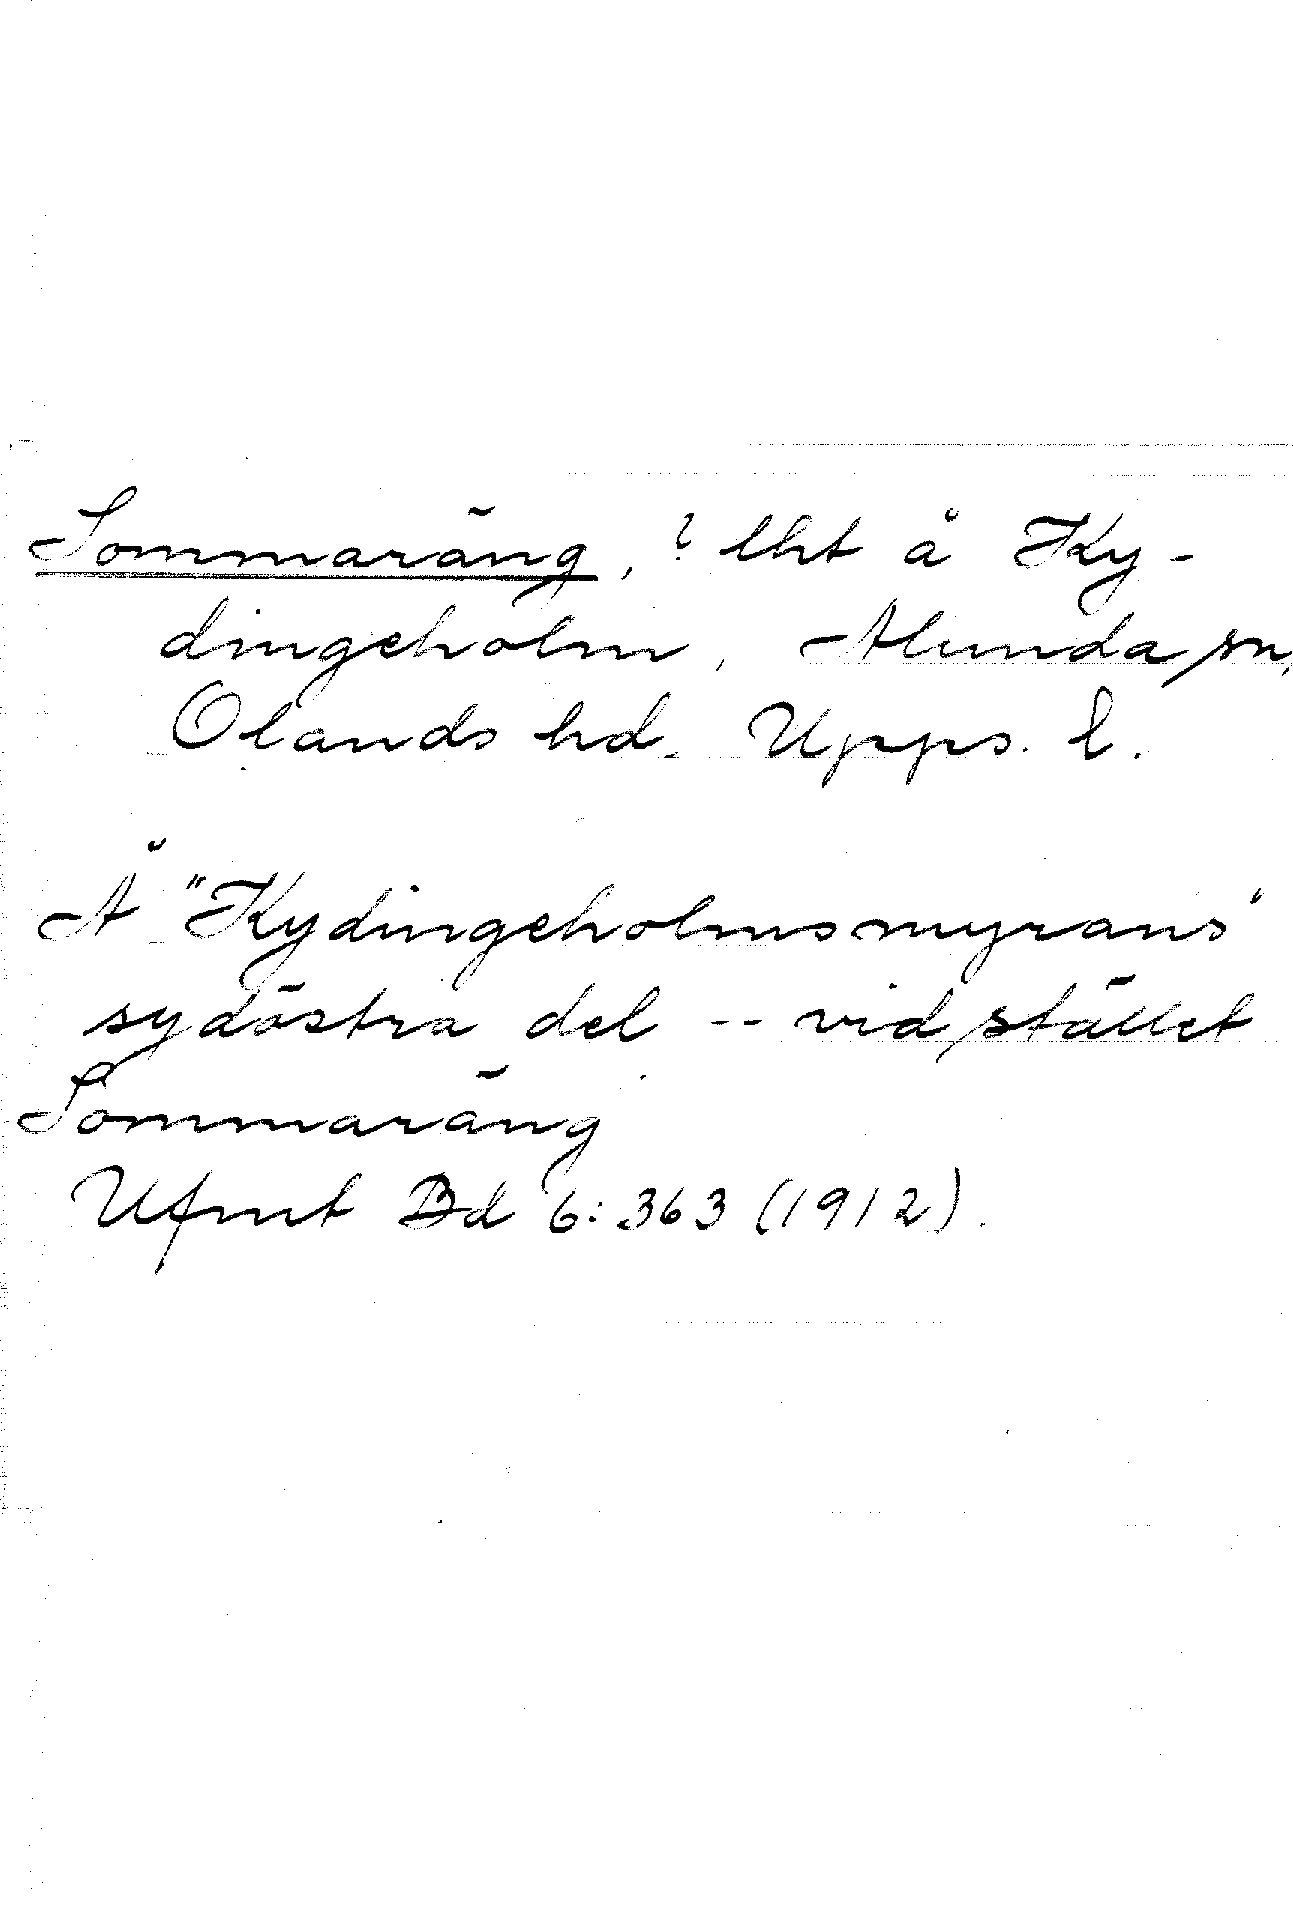 Sommaräng, ? lht å Ky-
dingeholm, Alunda sn,
Olands hd. Upps. l.
Å "Kydingeholmsmyrans"
sydöstra del -- vid stället
Sommaräng
Ufmt Bd 6:363 (1912).